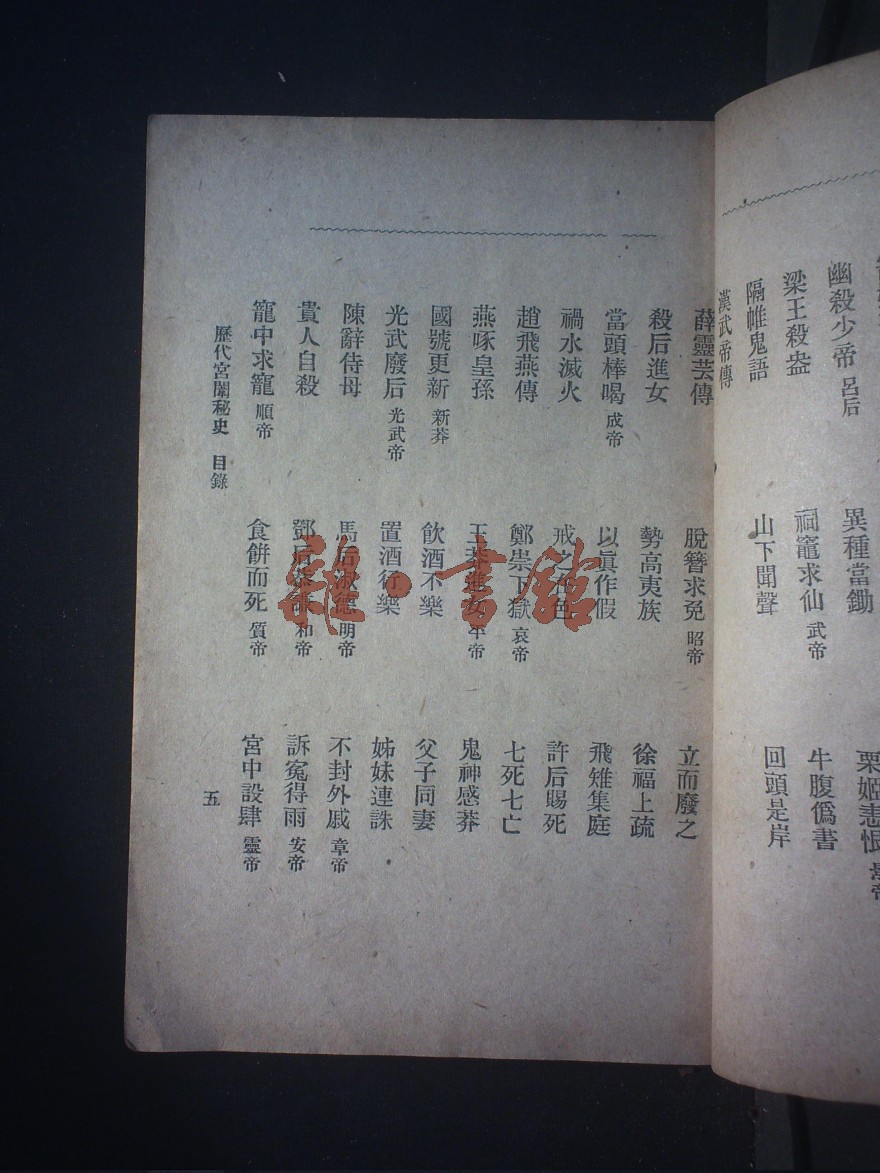 幽殺少帝 呂后 異種當鋤 栗姬恚恨
梁王殺盎 祠竈求仙 武帝 牛腹僞書
隔帷鬼語 山下聞聲 回頭是岸
漢武帝傳
薛靈芸傳 脫簪求免 昭帝 立而廢之
殺后進女 勢高夷族 徐福上疏
當頭棒喝 成帝 以眞作假 飛雉集庭
禍水滅火 戒之在色 許后賜死
趙飛燕傳 鄭崇下獄 哀帝 七死七亡
燕啄皇孫 王莽進女 平帝 鬼神感莽
國號更新 新莽 飲酒不樂 父子同妻
光武廢后 光武帝 置酒行樂 姊妹連誅
陳辭侍母 馬后淑德 明帝 不封外戚 章帝
貴人自殺 鄧后 和帝 訴冤得雨 安帝
寵中求寵 順帝 食餅而死 質帝 宮中設肆 靈帝
歷代宮闈秘史 目錄 五
雜·書館